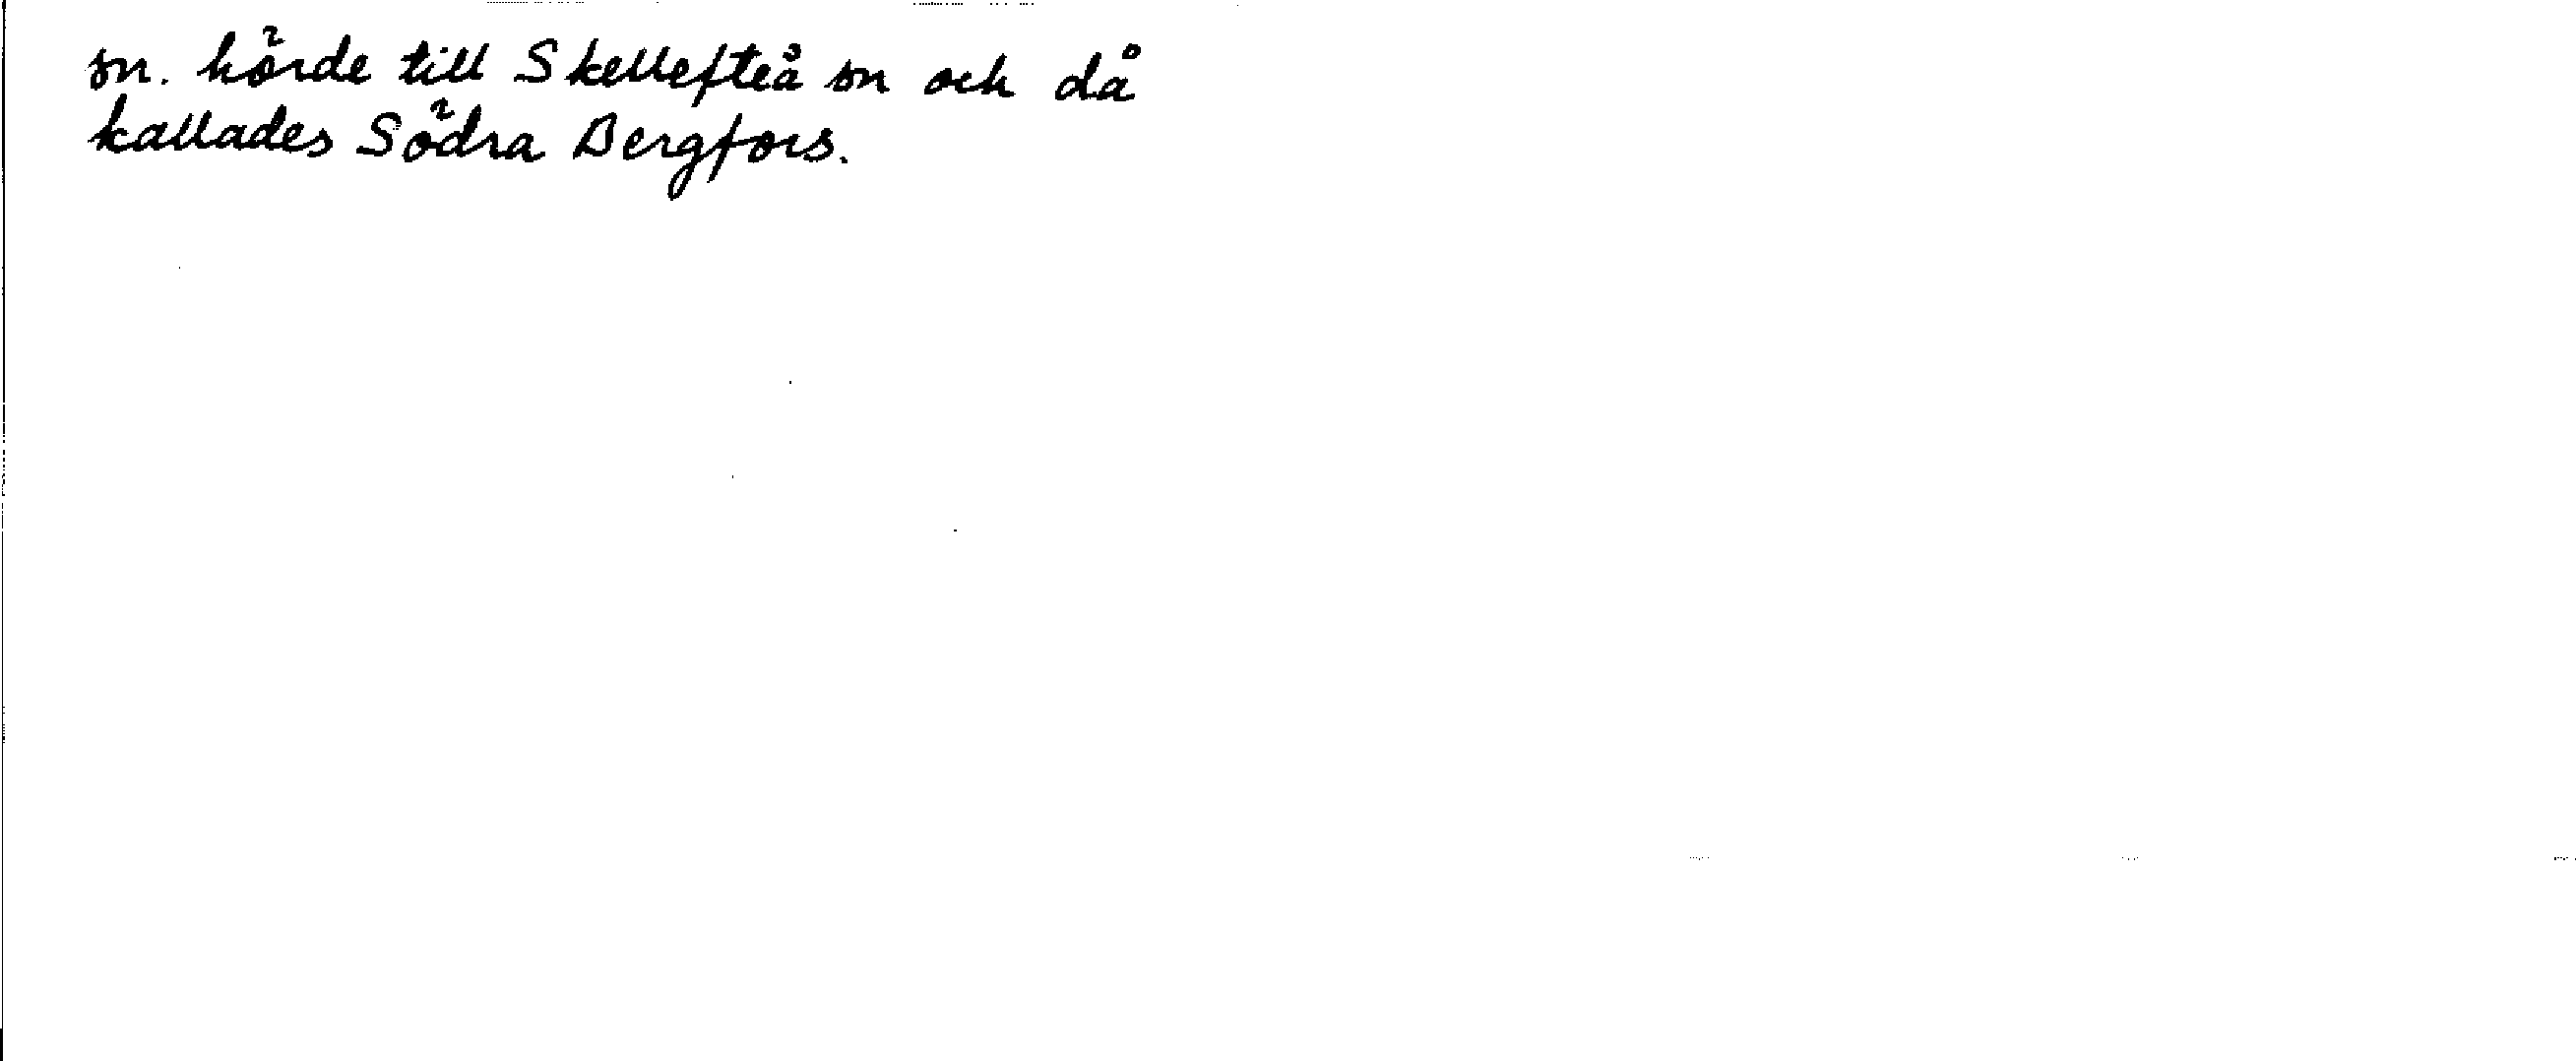 sn. hörde till Skellefteå sn och då
kallades Södra Bergfors.